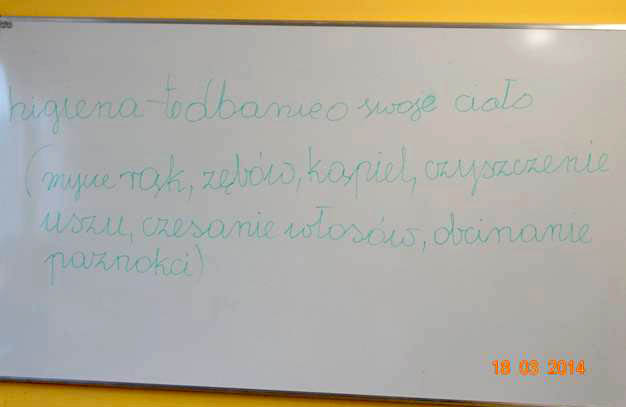 higiena - to dbanie o swoje ciało
(mycie rąk, zębów, kąpiel, czyszczenie
uszu, czesanie włosów, obcinanie
paznokci)
18 03 2014